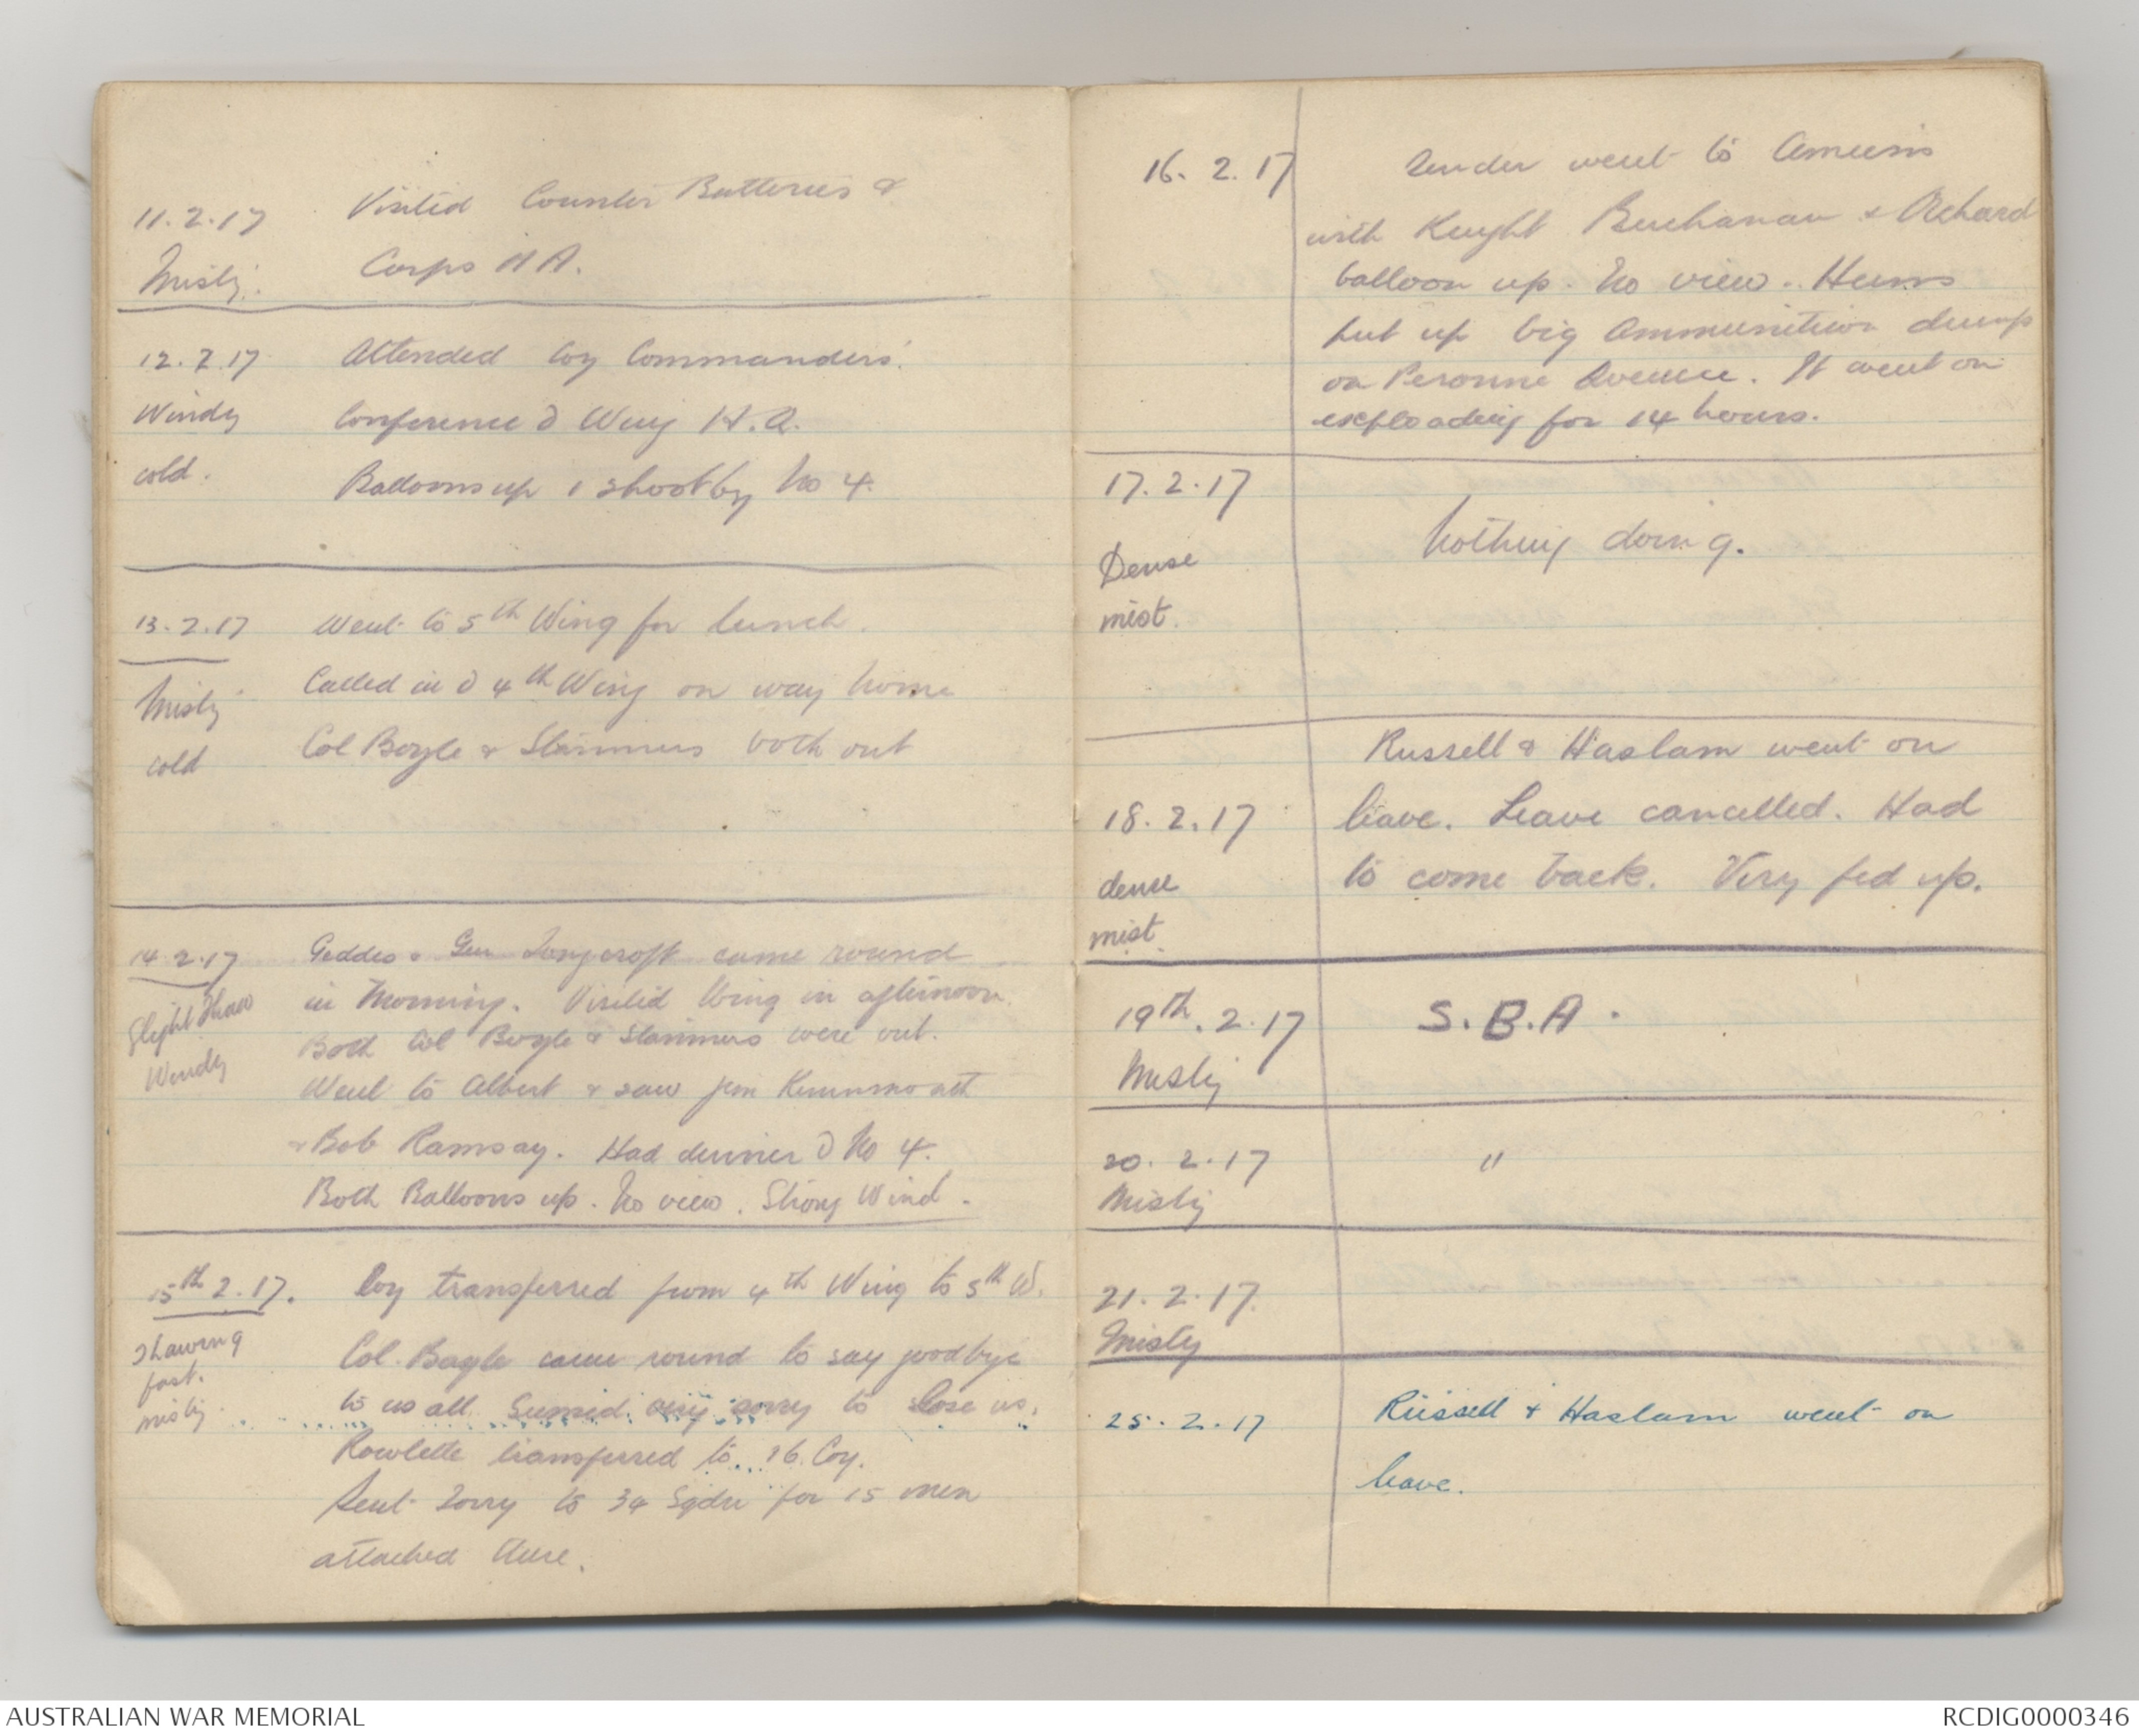 11.2.17 Visited Counter Batteries &
Misty. Corps H A.
12.2.17 Attended Coy Commanders'
Windy Conference @ Wing H.Q.
cold. Balloons up 1 shoot by No 4.
13.2.17 Went to 5th Wing for lunch.
Misty Called in @ 4th Wing on way home
cold Col Boyle & Stammers both out
14.2.17 Geddes & Gen Longcroft came round
Slight Thaw in Morning. Visited Wing in afternoon.
Windy Both Col Boyle & Stammers were out.
Went to Albert & saw Jim
& Bob Ramsay. Had dinner @ No 4.
Both Balloons up. No view. Strong Wind.
15th 2.17. Coy transferred from 4th Wing to 5th W.
Thawing Col. Boyle came round to say goodbye
fast. to us all. Seemed very sorry to lose us.
misty
Rowlette transferred to 16 Coy.
Sent Lorry to 34 Sqdn for 15 men
attached there.
16.2.17 Tender went to Amiens
with Knight Buchanan &
balloon up. No view. Huns
put up big Ammunition dump
on Peronne Avenue. It went on
exploading for 14 hours.
17.2.17
Nothing doing.
Dense
mist.
Russell & Haslam went on
18.2.17 leave. Leave cancelled. Had
dense to come back. Very fed up.
mist.
19th.2.17 S.B.A.
Misty
20.2.17 "
Misty
21.2.17.
Misty
25.2.17 Russell & Haslam went on
leave.
AUSTRALIAN WAR MEMORIAL RCDIG0000346